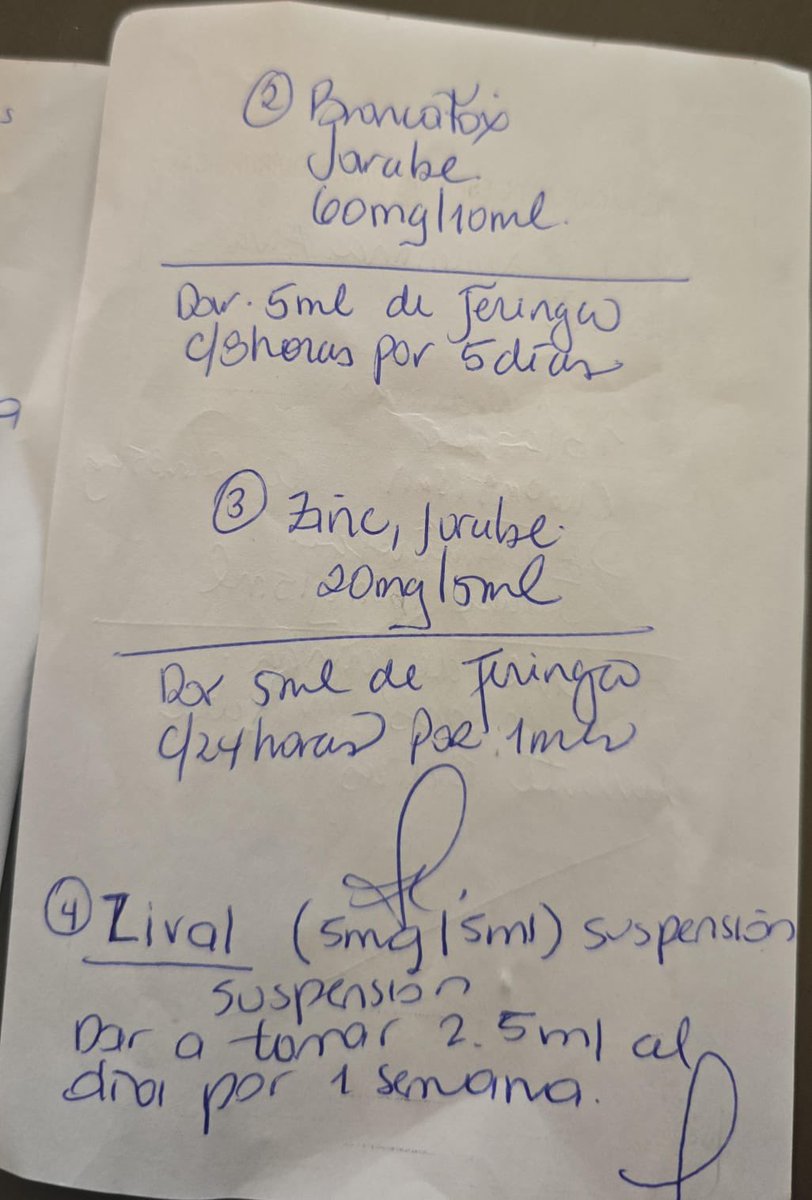 ② Broncatox
Jarabe.
60mg/10ml.
Dar. 5ml de Jeringa
c/8horas por 5 días
③ Zinc, Jarabe.
20mg/5ml
Dar 5ml de Jeringa
c/24horas Por 1mes
④ Zival (5mg/5ml) suspensión
suspensión
Dar a tomar 2.5ml al
día por 1 semana.
s
a